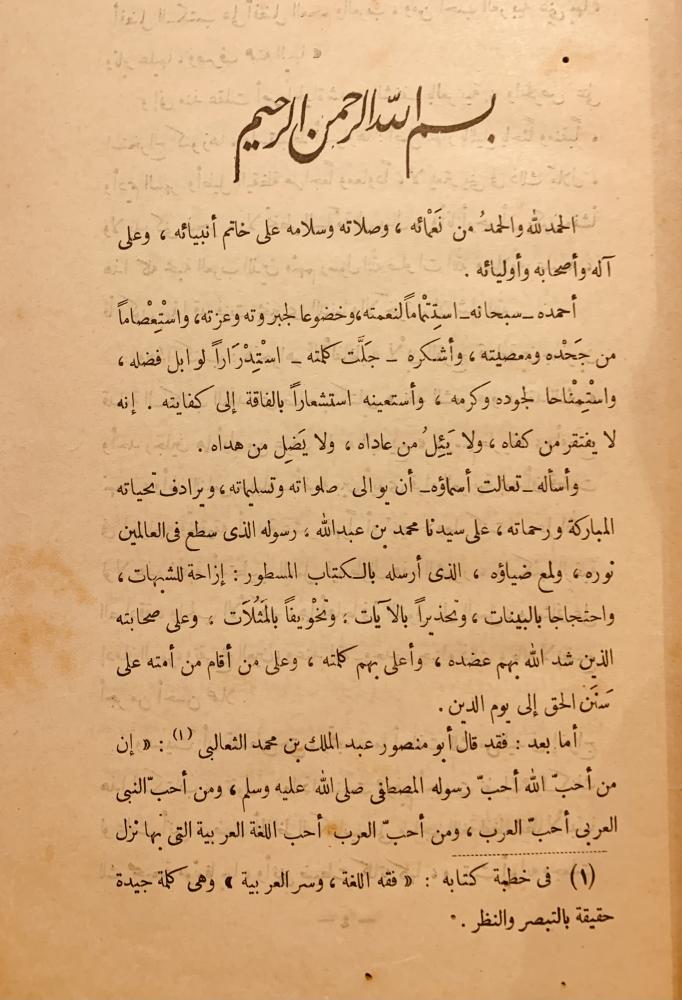 بسم الله الرحمن الرحيم
الحمد لله والحمدُ من نَعْمائه ، وصلاته وسلامه على خاتم أنبيائه ، وعلى
آله وأصحابه وأوليائه .
أحمده ـ سبحانه ـ استِتْماماً لنعمته، وخضوعا لجبروته وعزته، واستِعْصاماً
من جَحْده ومعصيته ، وأشكره ـ جَلَّت كلمته ـ استِدْرَاراً لوابل فضله ،
واستِمْناحا لجوده وكرمه ، وأستعينه استشعاراً بالفاقة إلى كفايته . إنه
لا يفتقر من كفاه ، ولا يَئِلُ من عاداه ، ولا يَضِل من هداه .
وأسأله ـ تعالت أسماؤه ـ أن يوالى صلواته وتسليماته ، ويرادف تحياته
المباركة ورحماته ، على سيدنا محمد بن عبدالله ، رسوله الذى سطع فى العالمين
نوره ، ولمع ضياؤه ، الذى أرسله بالكتاب المسطور : إزاحة للشبهات ،
واحتجاجا بالبينات ، وتحذيراً بالآيات ، وتخْويفاً بالمَثُلَات ، وعلى صحابته
الذين شد الله بهم عضده ، وأعلى بهم كلمته ، وعلى من أقام من أمته على
سَنَن الحق إلى يوم الدين .
أما بعد : فقد قال أبو منصور عبد الملك بن محمد الثعالبى (١) : « إن
من أحبّ الله أحبّ رسوله المصطفى صلى الله عليه وسلم ، ومن أحبّ النبى
العربى أحبّ العرب ، ومن أحبّ العرب أحب اللغة العربية التى بها نزل
(١) فى خطبة كتابه : « فقه اللغة ، وسر العربية » وهى كلمة جيدة
حقيقة بالتبصر والنظر .